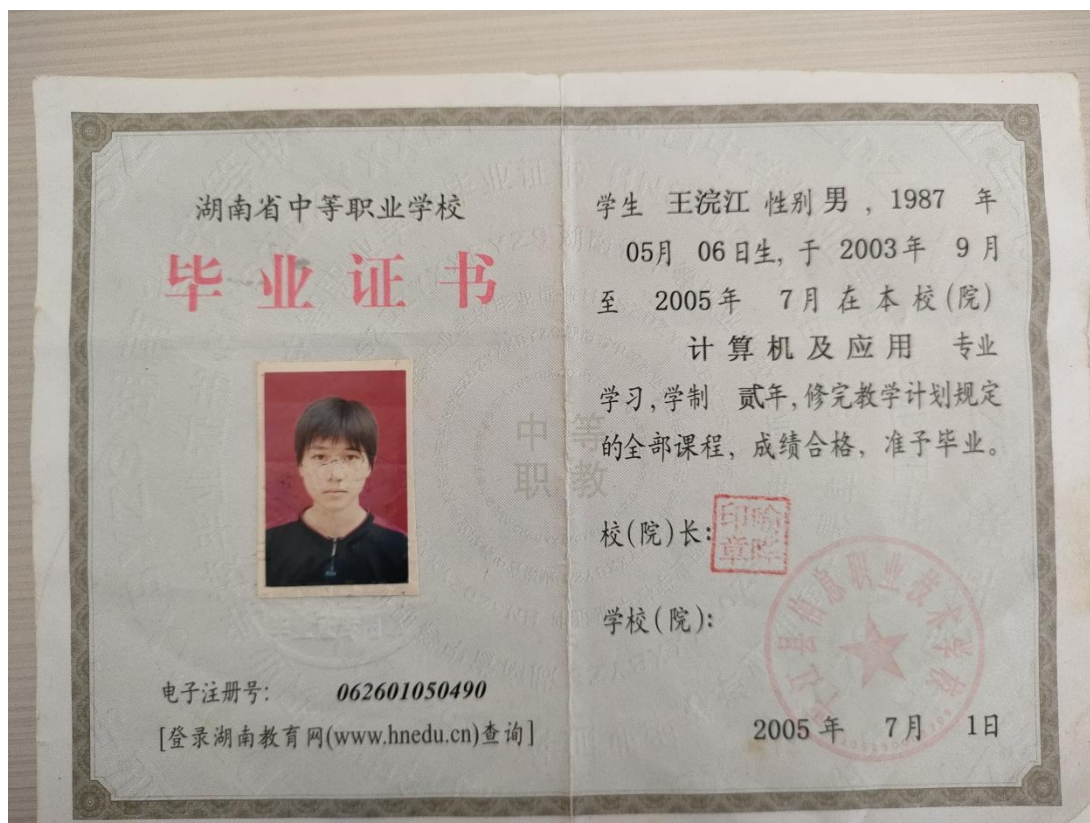 湖南省中等职业学校
毕业证书
电子注册号: 062601050490
[登录湖南教育网(www.hnedu.cn)查询]
学生 王浣江 性别 男 , 1987 年
05月 06日生, 于 2003年 9月
至 2005年 7月在本校(院)
计算机及应用 专业
学习,学制 贰年,修完教学计划规定
的全部课程, 成绩合格, 准予毕业。
中等
职教
校(院)长:
印章
学校(院):
江县信息职业技术学校
2005年 7月 1日